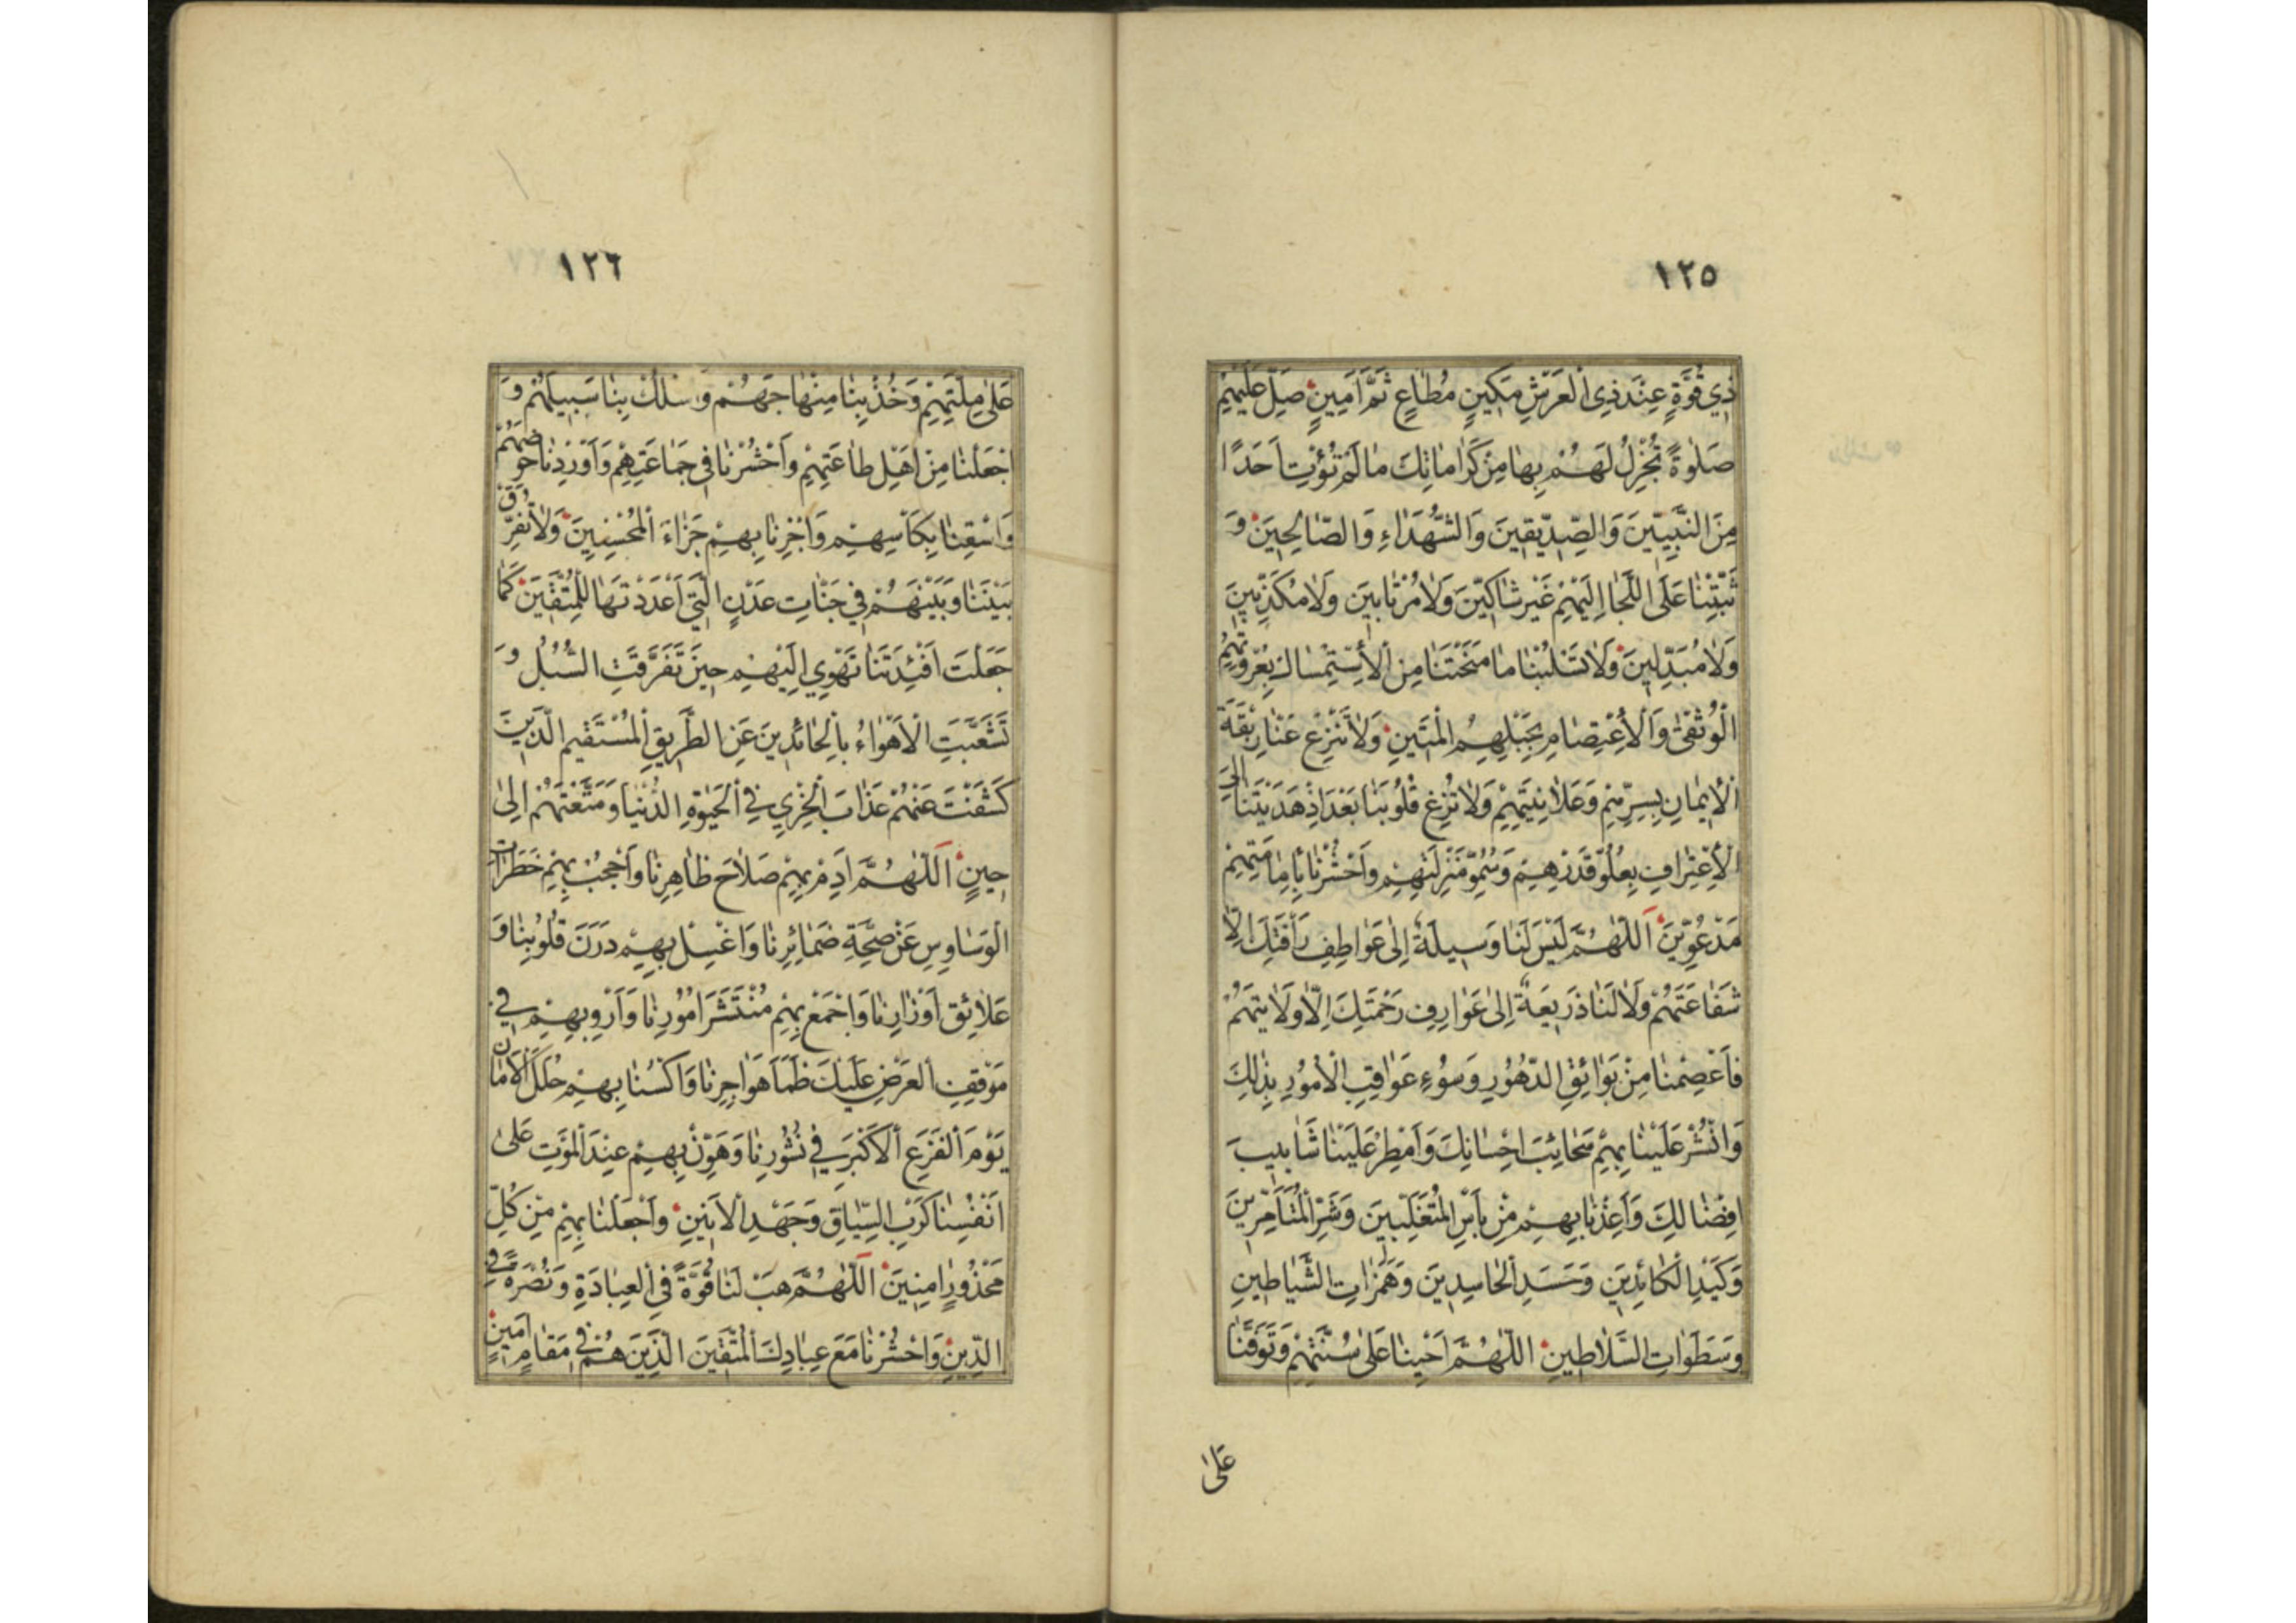 ١٢٥
ذِي قُوَّةٍ عِنْدَ ذِي الْعَرْشِ مَكِينٍ مُطَاعٍ ثَمَّ أَمِينٍ صَلِّ عَلَيْهِمْ
صَلٰوةً تُجْزِلُ لَهُمْ بِهَا مِنْ كَرَامَاتِكَ مَا لَمْ تُؤْتِ اَحَدًا
مِنَ النَّبِيِّينَ وَالصِّدِّيقِينَ وَالشُّهَدَاءِ وَالصَّالِحِينَ وَ
ثَبِّتْنَا عَلَى اللَّجَاءِ اِلَيْهِمْ غَيْرَ شَاكِّينَ وَلَا مُرْتَابِينَ وَلَا مُكَذِّبِينَ
وَلَا مُبَدِّلِينَ وَلَا تَسْلُبْنَا مَا مَنَحْتَنَا مِنَ الْاِسْتِمْسَاكِ بِعُرْوَتِهِمُ
الْوُثْقٰى وَالْاِعْتِصَامِ بِحَبْلِهِمُ الْمَتِينِ وَلَا تَنْزِعْ عَنَّا رِبْقَةَ
الْاِيمَانِ بِسِرِّهِمْ وَعَلَانِيَتِهِمْ وَلَا تُزِغْ قُلُوبَنَا بَعْدَ اِذْ هَدَيْتَنَا اِلَى
الْاِعْتِرَافِ بِعُلُوِّ قَدْرِهِمْ وَسُمُوِّ مَنْزِلَتِهِمْ وَاحْشُرْنَا بِاِمَامَتِهِمْ
مَدْعُوِّينَ اَللّٰهُمَّ لَيْسَ لَنَا وَسِيلَةٌ اِلٰى عَوَاطِفِ رَأْفَتِكَ اِلَّا
شَفَاعَتَهُمْ وَلَا لَنَا ذَرِيعَةٌ اِلٰى عَوَارِفِ رَحْمَتِكَ اِلَّا وَلَايَتَهُمْ
فَاعْصِمْنَا مِنْ بَوَائِقِ الدُّهُورِ وَسُوءِ عَوَاقِبِ الْاُمُورِ بِذٰلِكَ
وَانْشُرْ عَلَيْنَا بِهِمْ سَحَائِبَ اِحْسَانِكَ وَاَمْطِرْ عَلَيْنَا شَآبِيبَ
اِفْضَالِكَ وَاَعِذْنَا بِهِمْ مِنْ بَأْسِ الْمُتَغَلِّبِينَ وَشَرِّ الْمُتَأَخِّرِينَ
وَكَيْدِ الْكَائِدِينَ وَحَسَدِ الْحَاسِدِينَ وَهَمَزَاتِ الشَّيَاطِينِ
وَسَطَوَاتِ السَّلَاطِينِ اَللّٰهُمَّ اَحْيِنَا عَلٰى سُنَّتِهِمْ وَتَوَفَّنَا
عَلٰى
١٢٦
عَلٰى مِلَّتِهِمْ وَخُذْ بِنَا مِنْهَاجَهُمْ وَاسْلُكْ بِنَا سَبِيلَهُمْ وَ
اجْعَلْنَا مِنْ اَهْلِ طَاعَتِهِمْ وَاحْشُرْنَا فِي جَمَاعَتِهِمْ وَاَوْرِدْنَا حَوْضَهُمْ
وَاسْقِنَا بِكَأْسِهِمْ وَاجْزِنَا بِهِمْ جَزَاءَ الْمُحْسِنِينَ وَلَا تُفَرِّقْ
بَيْنَنَا وَبَيْنَهُمْ فِي جَنَّاتِ عَدْنٍ الَّتِي اَعْدَدْتَهَا لِلْمُتَّقِينَ كَمَا
جَعَلْتَ اَفْئِدَتَنَا تَهْوِي اِلَيْهِمْ حِينَ تَفَرَّقَتِ السُّبُلُ وَ
تَشَعَّبَتِ الْاَهْوَاءُ بِالْحَائِدِينَ عَنِ الطَّرِيقِ الْمُسْتَقِيمِ الَّذِينَ
كَشَفْتَ عَنْهُمْ عَذَابَ الْخِزْيِ فِي الْحَيٰوةِ الدُّنْيَا وَمَتَّعْتَهُمْ اِلٰى
حِينٍ اَللّٰهُمَّ اَدِمْ بِهِمْ صَلَاحَ ظَاهِرِنَا وَاحْجُبْ بِهِمْ خَطَرَاتِ
الْوَسَاوِسِ عَنْ صِحَّةِ ضَمَائِرِنَا وَاغْسِلْ بِهِمْ دَرَنَ قُلُوبِنَا وَ
عَلَائِقَ اَوْزَارِنَا وَاجْمَعْ بِهِمْ مُنْتَشَرَ اُمُورِنَا وَاَرْوِ بِهِمْ فِي
مَوْقِفِ الْعَرْضِ عَلَيْكَ ظَمَأَ هَوَاجِرِنَا وَاكْسُنَا بِهِمْ حُلَلَ الْاَمَانِ
يَوْمَ الْفَزَعِ الْاَكْبَرِ فِي نُشُورِنَا وَهَوِّنْ بِهِمْ عِنْدَ الْمَوْتِ عَلٰى
اَنْفُسِنَا كَرْبَ السِّيَاقِ وَجَهْدَ الْاَنِينِ وَاجْعَلْنَا بِهِمْ مِنْ كُلِّ
مَحْذُورٍ اٰمِنِينَ اَللّٰهُمَّ هَبْ لَنَا قُوَّةً فِي الْعِبَادَةِ وَنُصْرَةً فِي
الدِّينِ وَاحْشُرْنَا مَعَ عِبَادِكَ الْمُتَّقِينَ الَّذِينَ هُمْ فِي مَقَامٍ اَمِينٍ